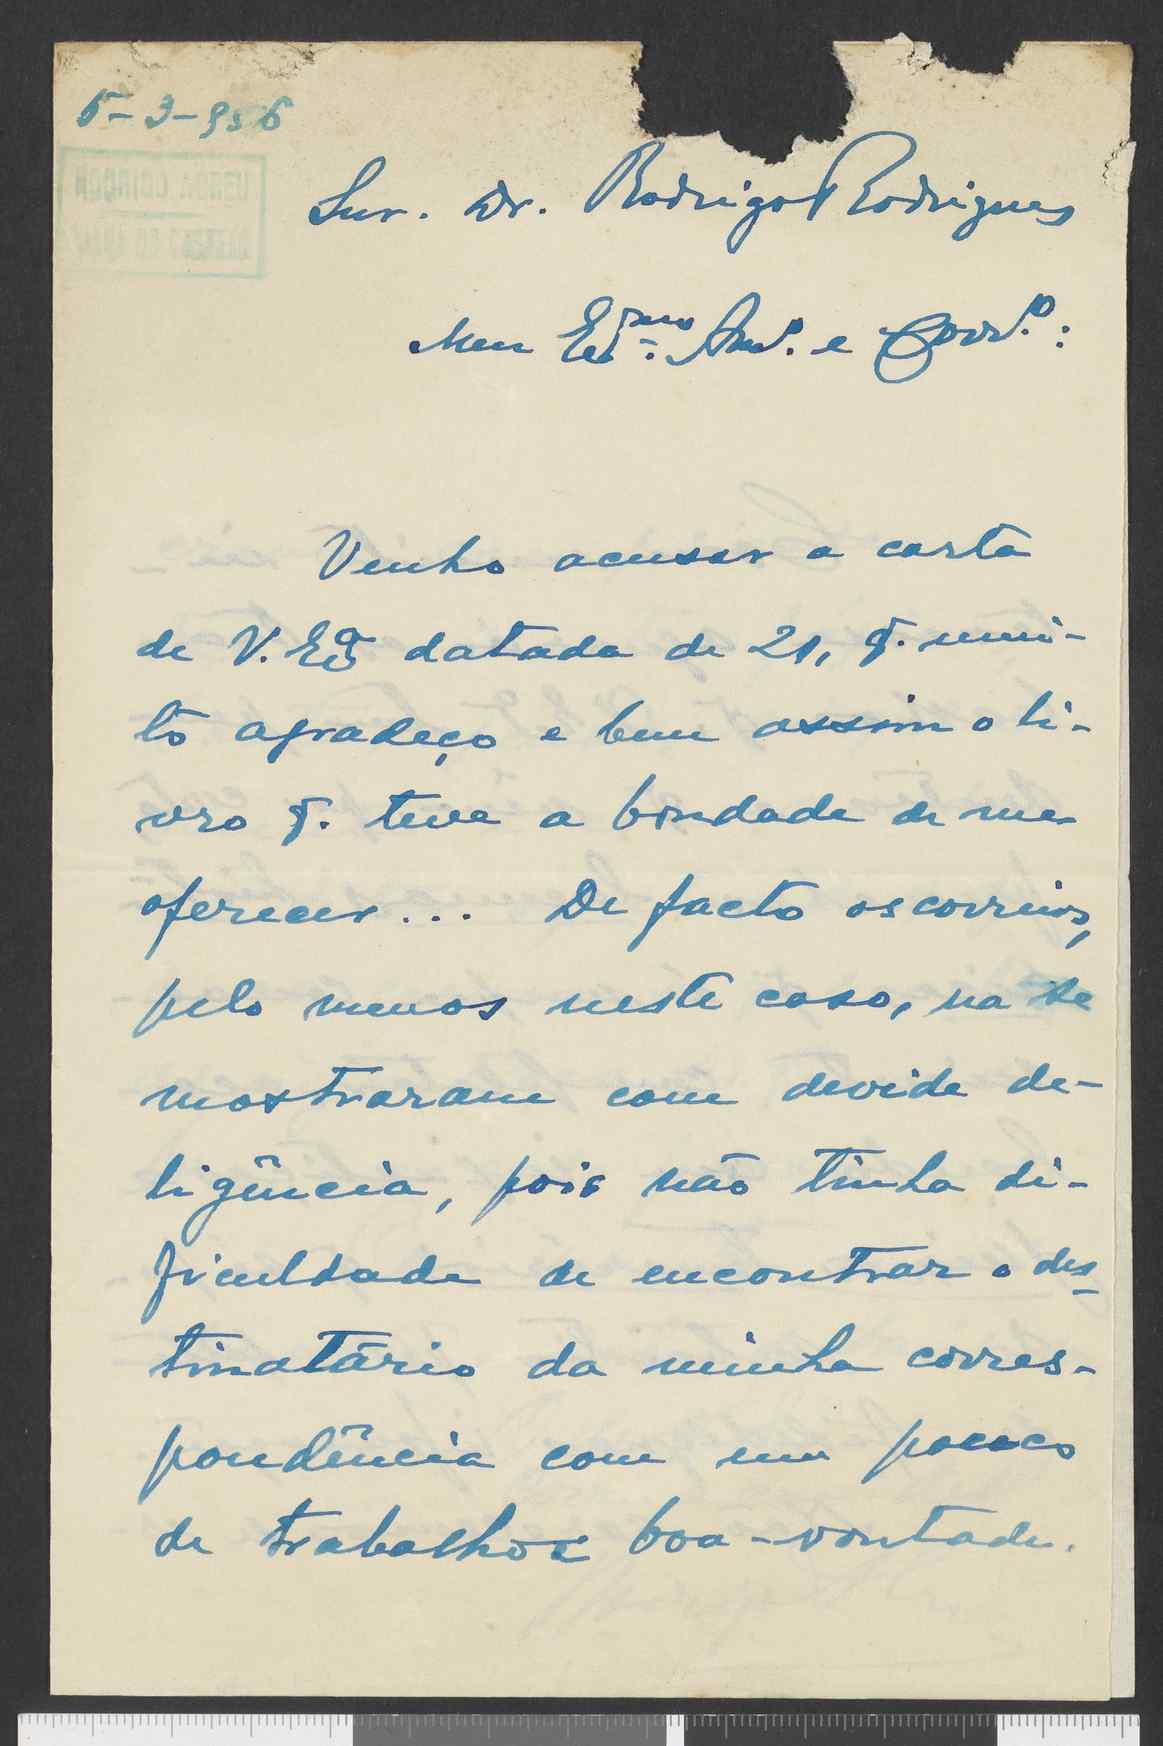 5-3-956
Snr. Dr. Rodrigo Rodrigues
Meu Exmo. Amº. e Corrº.:
Venho acusar a carta
de V. Exª datada de 21, q. mui-
to agradeço e bem assim o li-
vro q. teve a bondade de me
oferecer... De facto os correios,
pelo menos neste caso, na se
mostraram com devida de-
ligência, pois não tinha di-
ficuldade de encontrar o des-
tinatário da minha corres-
pondência com um pouco
de trabalho e boa-vontade.